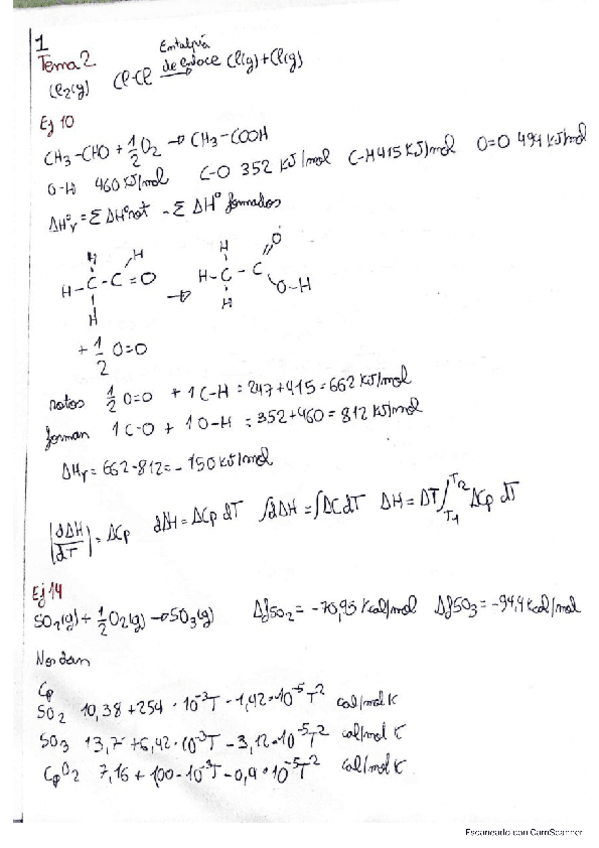 1
Tema 2.
Cl₂(g) Cl-Cl Entalpía de enlace → Cl(g)+Cl(g)
Ej 10
CH₃-CHO + 1/2 O₂ → CH₃-COOH
O-H 460 KJ/mol C-O 352 KJ/mol C-H 415 KJ/mol O=O 494 KJ/mol
ΔH°r = Σ ΔH°rot - Σ ΔH° formados
H H H O
H-C-C=O → H-C-C
H H O-H
+ 1/2 O=O
rotos 1/2 O=O + 1 C-H = 247+415 = 662 KJ/mol
forman 1 C-O + 1 O-H = 352+460 = 812 KJ/mol
ΔHr = 662-812 = -150 KJ/mol
|dΔH/dT| = ΔCp dΔH = ΔCp dT ∫dΔH = ∫ΔC dT ΔH = ΔT ∫T₁ T₂ ΔCp dT
Ej 14
SO₂(g) + 1/2 O₂(g) → SO₃(g) ΔfSO₂ = -70,95 Kcal/mol ΔfSO₃ = -94,4 Kcal/mol
Nos dan
Cp
SO₂ 10,38+254·10⁻³T - 1,42·10⁻⁵T² cal/mol K
SO₃ 13,7+6,42·10⁻³T - 3,12·10⁻⁵T² cal/mol K
CpO₂ 7,16+100·10⁻³T - 0,9·10⁻⁵T² cal/mol K
Escaneado con CamScanner